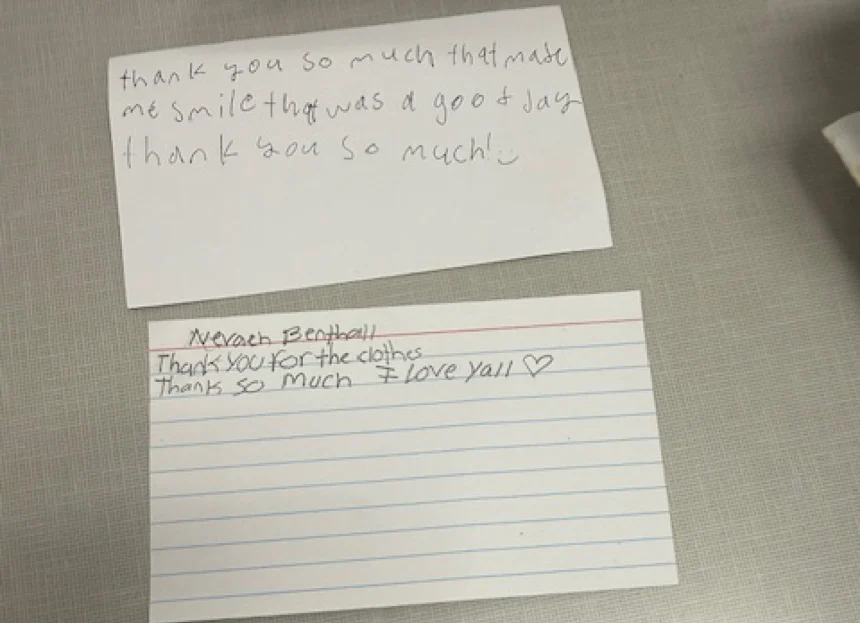 thank you so much that made
me smile that was a good day
thank you so much! :)
Nevaeh Benthall
Thank you for the clothes
Thanks so much I love yall ♡